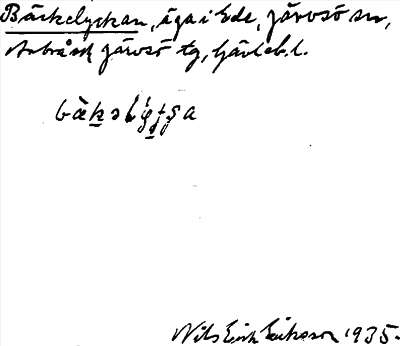 Bäckelyckan, äga i Ede, Järvsö sn,
Arbrå och Järvsö tg, Gävleb. l.
Nils Erik Eriksson 1935.